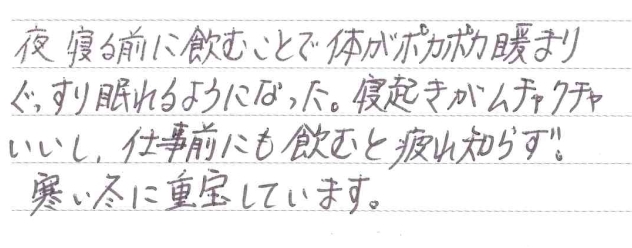 夜寝る前に飲むことで体がポカポカ暖まり
ぐっすり眠れるようになった。寝起きがムチャクチャ
いいし、仕事前にも飲むと疲れ知らず!
寒い冬に重宝しています。